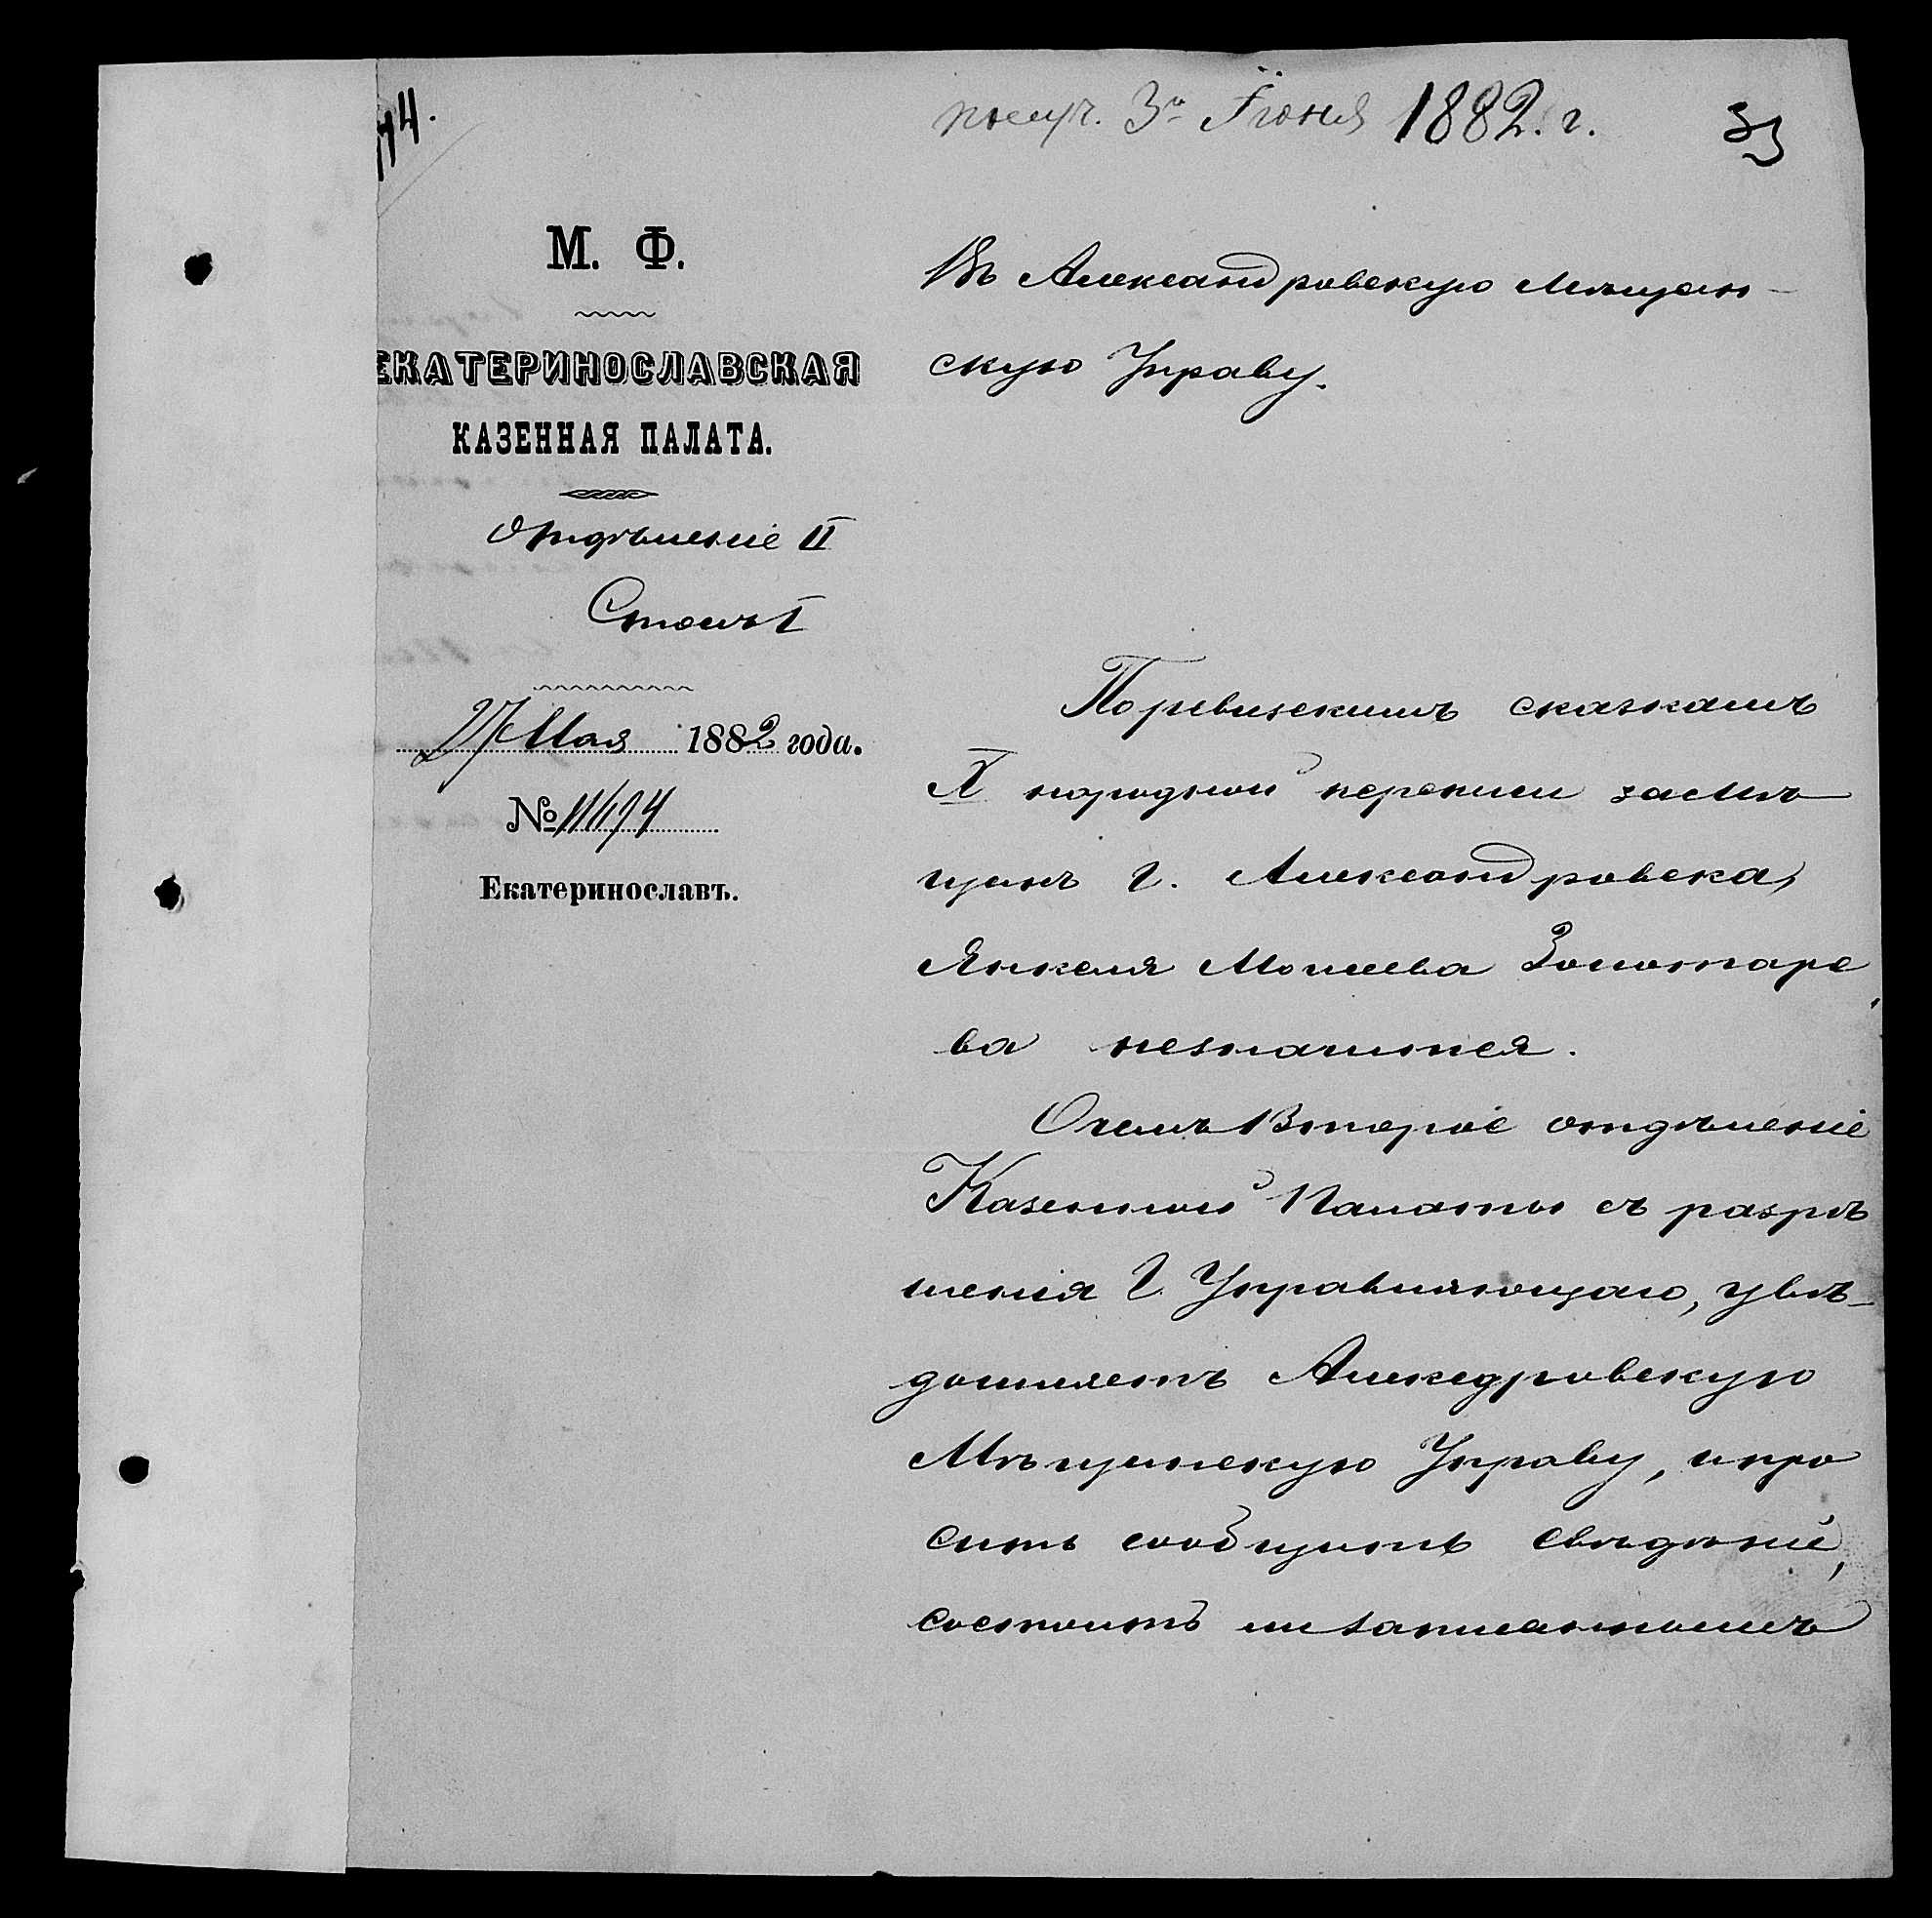 получ. 3го Іюня 1882. г.
33
М. Ф.
ЕКАТЕРИНОСЛАВСКАЯ
КАЗЕННАЯ ПАЛАТА.
Отдѣленіе II
Столъ I
27 Мая 1882 года.
№ 11194
Екатеринославъ.
Въ Александровскую Мѣщан-
скую Управу.
Поревизскимъ сказкамъ
X народной переписи замѣ
щанъ г. Александровска,
Янкеля Мошеева Золотаре
ва незначится.
Очемъ Второе отдѣленіе
Казенной Палаты съ разрѣ
шенія Г. Управляющаго, увѣ-
домляетъ Алекедровскую
Мѣщанскую Управу, и про
ситъ сообщить свѣдѣніе,
состоитъ ли записаннымъ